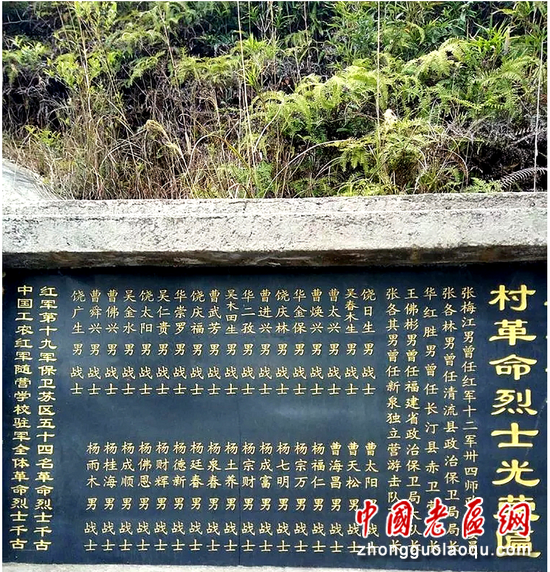 村革命烈士光荣匾
张梅江男曾任红军十二军卅四师政
张各林男曾任清流县政治保卫局局
华红胜男曾任长汀县赤卫
王佛彬男曾任福建省政治保卫局
张各其男曾任新泉独立营游击队
饶日生 男 战士
吴春木生 男 战士
曹太兴 男 战士
曹焕兴 男 战士
华金保 男 战士
饶庆林 男 战士
曹进兴 男 战士
华二孜 男 战士
吴木田生 男 战士
曹武芳 男 战士
饶庆福 男 战士
华崇罗 男 战士
吴仁贵 男 战士
饶太阳 男 战士
吴金水 男 战士
曹佛兴 男 战士
曹舜兴 男 战士
饶广生 男 战士
曹太阳 男
曹天松 男
曹海昌 男
杨福仁 男
杨宗万 男 战士
杨七明 男 战士
杨成富 男 战士
杨宗财 男 战士
杨土养 男 战士
杨泉春 男 战士
杨廷春 男 战士
杨德新 男 战士
杨财辉 男 战士
杨佛恩 男 战士
杨成顺 男 战士
杨桂海 男 战士
杨雨木 男 战士
红军第十九军保卫苏区五十四名革命烈士千古
中国工农红军随营学校驻军全体革命烈士千古
中國老區網
zhongguolaoqu.com